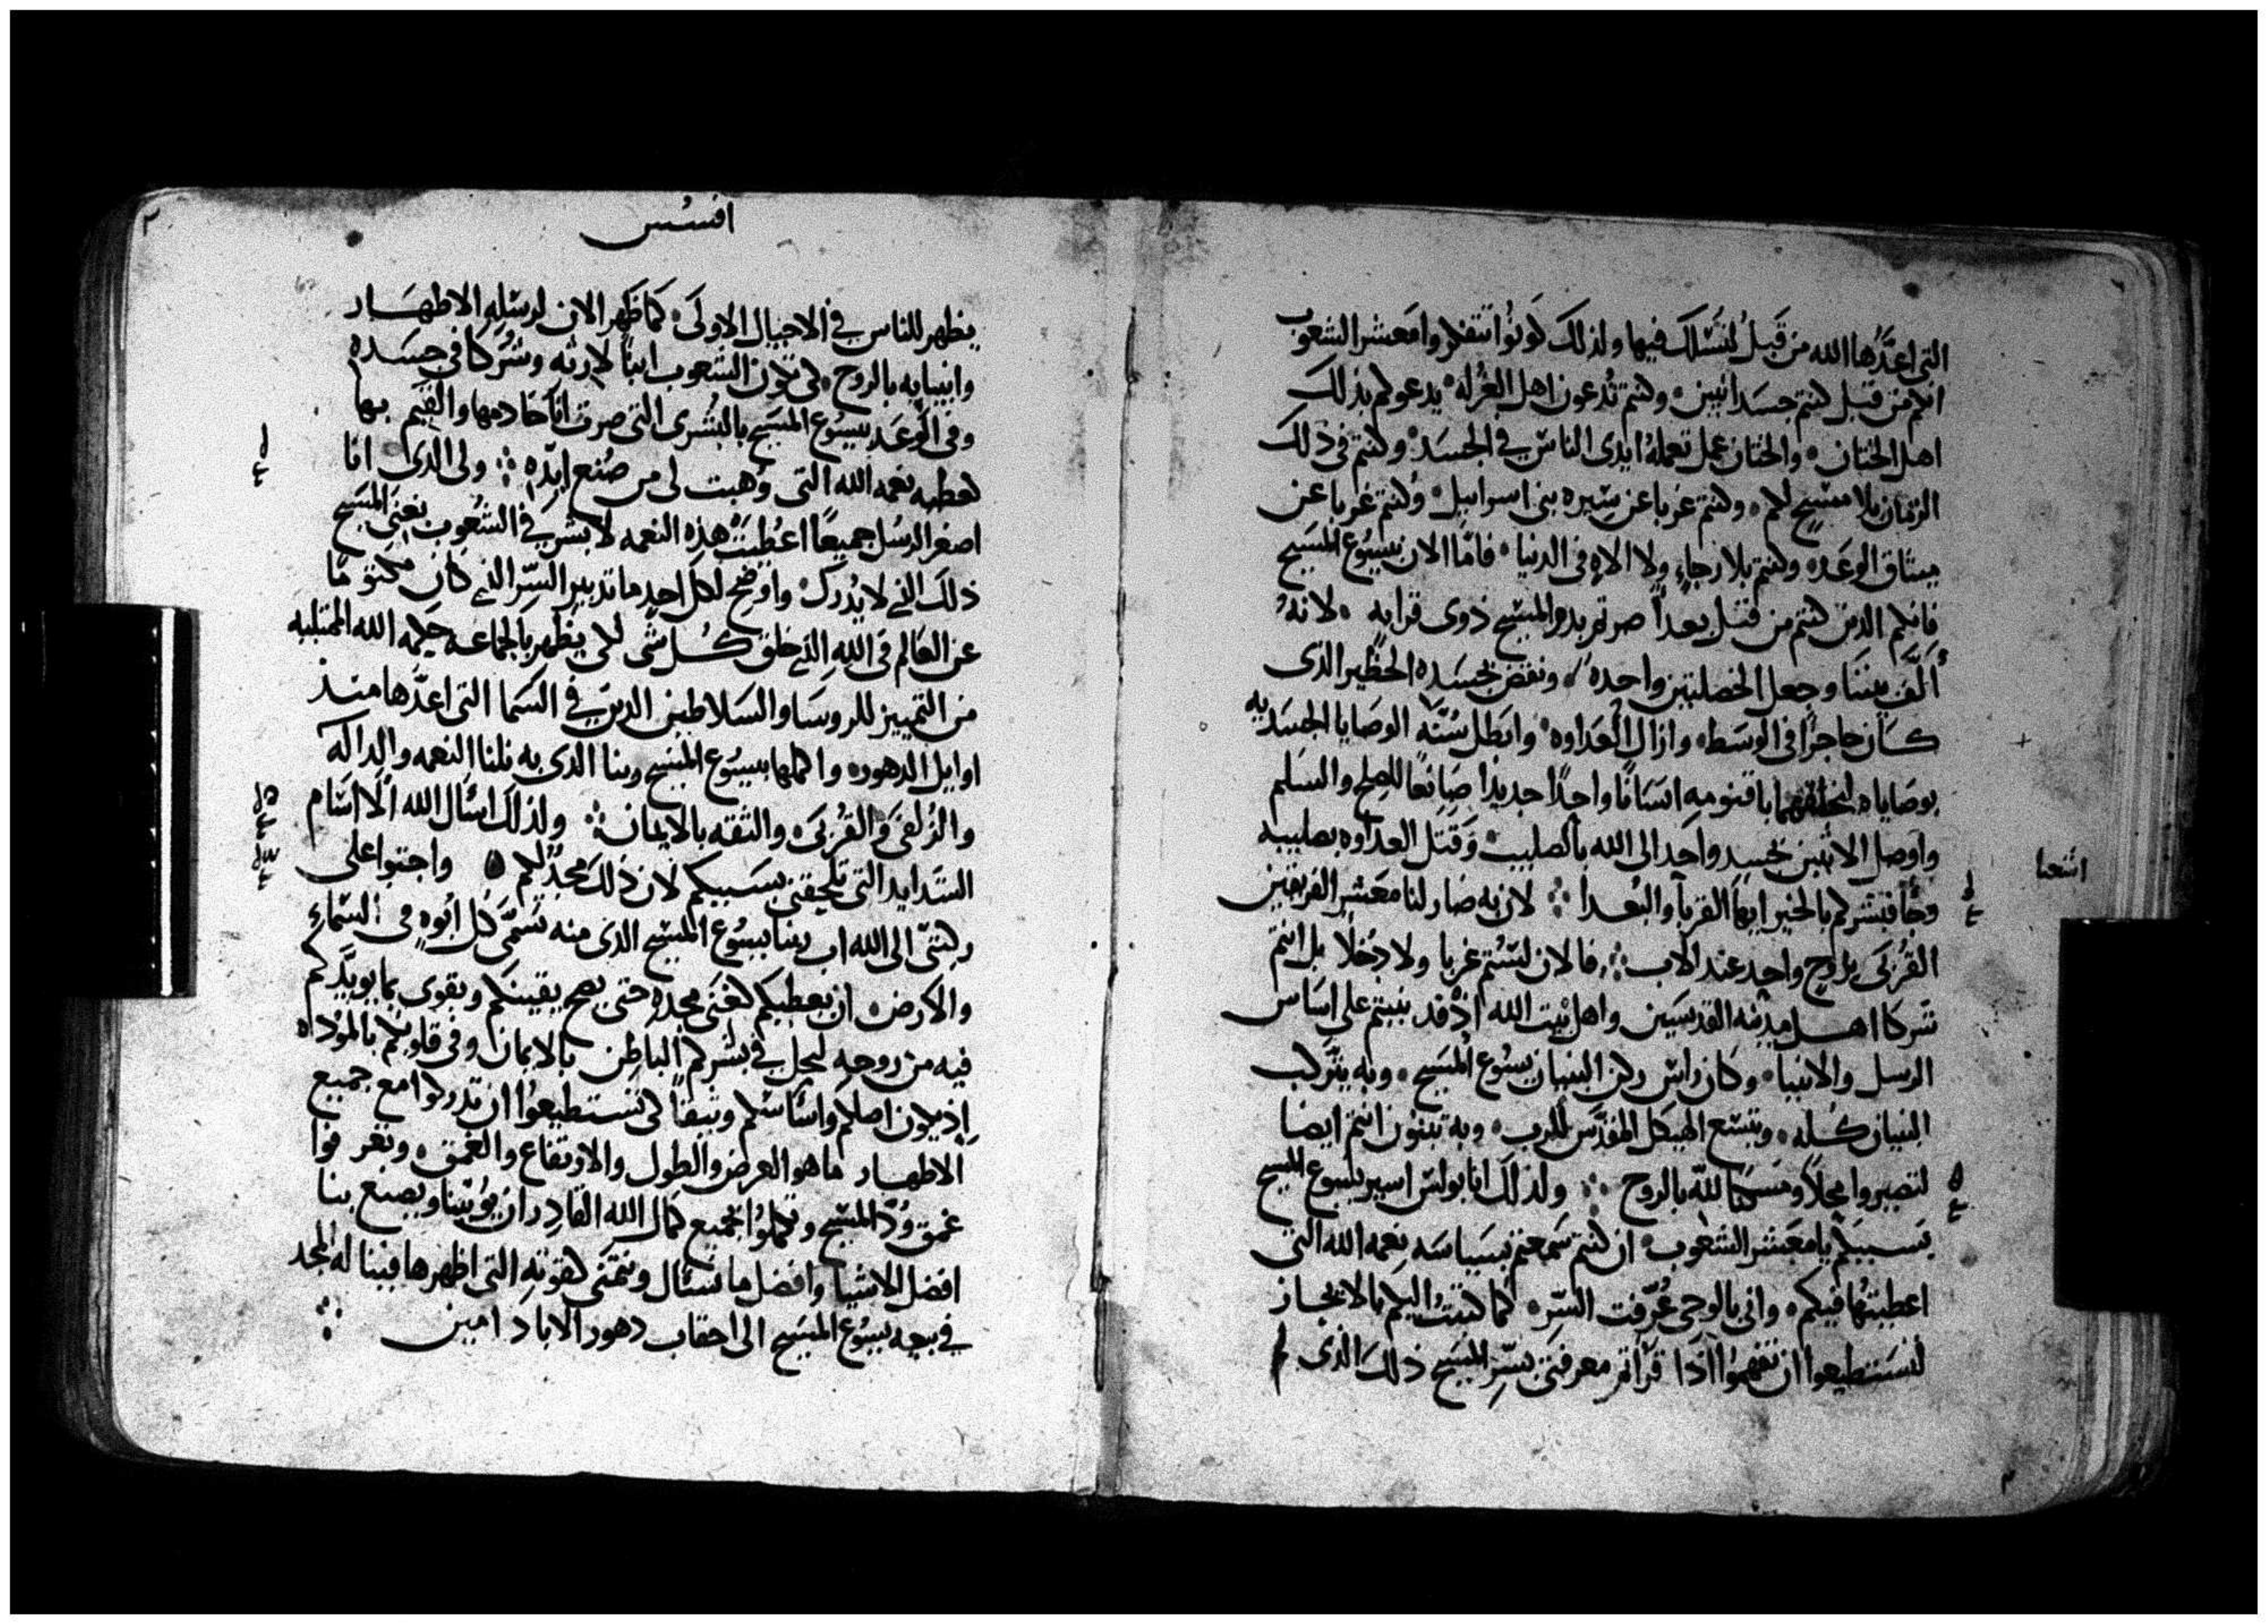 التى اعدَّها الله من قَبلُ لنسْلك فيها ولذلك كونُوا تتفكروا معشر الشعوب
انكم من قبل كنتم جسدانيين وكنتم تُدعون اهل الغُرله يدعوكم بذلك
اهل الختان والختان عمل تعملهُ ايدى الناس في الجسَد وكنتم فى ذلك
الزمان بلا مسيح لكم وكنتم غربا عن سيره بنى اسراييل وكنتم غربا عن
ميثاق الوعَد وكنتم بلا رجاءٍ ولا الاه فى الدنيا فامَّا الان بيسُوع المسَيح
فانكم الذين كنتم من قبل بعداً صرتم بدم المسيح ذوى قرابه لانهُ
أَلَّف بيننا وجعل الخصلتين واحده ونقض بجسَده الحظير الذى
كان حاجزًا فى الوسَط وازال العداوه وابَطل سُنّة الوصَايا الجسَديه
بوصَاياه ليخلقهما باقنومه انسَانًا واحِدًا جديدًا صَانعًا للصلح والسَلم
واوصل الاثنين بجسدٍ واحَد الى الله بالصليب وَقَتل العداوه بصليبه
اشعيا
وجَّا فبَشركم بالخير ايها القربآ والبُعدا لان به صار لنا معَشر الفريقين
القُربَى بروحٍ واحِدٍ عند الاب فالان لسْتم غربا ولا دُخلا بل انتم
شركا اهل مدينه القديسَين واهل بيت الله اذ قد بنيتم على اسَاس
الرسل والانبيا وكان راسَ ركن البنيان يسُوع المسَيح وبه يتركب
البنيان كُله ويتسع الهيكل المقدَّس للرب وبه تبنون انتم ايضا
لتصيروا محِلاً ومسَكنًا لله بالروح ولذلك انا بولس اسير يسُوع المسيح
بسَببكم يا معَشر الشعوب ان كنتم سَمعتم بسَياسَه نِعمه الله التى
اعطيتُها فيكم وانى بالوحى عُرّفت السّر كما كتبتُ اليكم بالايجاز
لتسَتطيعوا ان تفهموا اذا قرآتم معرفتى بسِّر المسَيح ذلك الذى لم
افسُس
يظهر للناس في الاجيال الاولَى كما ظَهر الان لرسَله الاطهَار
وانبيايه بالروح لكى تكون الشعوب ابنآ لارثه وشُركا في جسَده
وفى الوَعَد بيسُوع المسَيح بالبُشرى التى صرت انا خادمها والقيِّم بها
كعطيه نعمه الله التى وُهبت لى من صُنع ايّدِه ولى الذى انا
اصغر الرسُل جميعًا اعُطيَت هذه النعمه لابشر في الشُعوب بغنَى المسَيح
ذلك الذى لا يُدرك واوضح لكل احدٍ ما تدبير السّر الذى كان مكتومًا
عن العَالم فى الله الذى خلق كُل شى لكى يظهر بالجماعه حِكمه الله الممتليه
من التمييز للروسَا والسَلاطين الذين في السَما التى اعدَّها منذ
اوايل الدهور واكملها بيسُوع المسَيح ربنا الذى به نلنا النعمه والداله
والزُلفَى والقُربَى والثقه بالايمان ولذلك اسَال الله الَّا اسَام
الشدايد التى تلحقنى بسَببكم لان ذلك مجدٌ لكم واجثوا على
ركبتىّ الى الله اب ربنا يسُوع المسَيح الذى منه تسَمَّى كل ابُوهٍ فى السَماءِ
والارض ان يعطيكم كغنَى مجده حتى يصح يقينكم ويقوى بما يويّدكم
فيه من روحه ليحل في بشركم الباطِن بالايمان وفى قلوبكم بالموُدات
اِذ يكون اصلكم واسَاسَكم وثيقًا لكى تسَتطيعُوا ان تدركوا مع جميع
الاطهار ما هو العرض والطول والارتفاع والعُمق وتعرفوا
عمق وُدّ المسَيح وتكملوُا بجميع كمال الله القادِر ان يوُتينا ويصنع بنا
افضل الاشيا وافضل ما نسَئال ونتمنى كقوته التى اظهرها فينا له المجد
في بيعه يسُوع المسَيح الى احقاب دهور الاباد امين